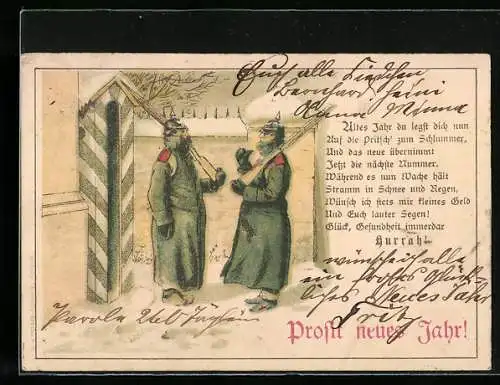 Euch alle
Bernhard seine
Minna
Altes Jahr du legst dich nun
Auf die Pritsch' zum Schlummer,
Und das neue übernimmt
Jetzt die nächste Nummer.
Während es nun Wache hält
Stramm in Schnee und Regen,
Wünsch ich stets mir kleines Geld
Und Euch lauter Segen!
Glück, Gesundheit immerdar
Hurrah!
wünscht alle
ein frohes Glück-
liches Neues Jahr
Fritz
Parole 260
Prosit neues Jahr!